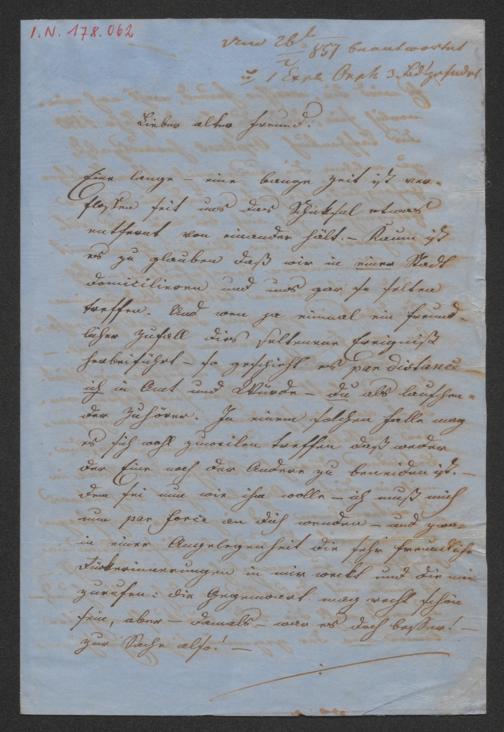 I.N. 178.062
Vom 26t/2 857 beantwortet
1 Expl. Orph.
Lieber alter Freund!
Eine lange – eine bange Zeit ist ver-
flossen seit uns das Schicksal etwas
entfernt von einander hält. – Kaum ist
es zu glauben daß wir in einer Stadt
domiciliren und uns gar so selten
treffen. Und wen ja einmal ein freund-
licher Zufall dies seltene Ereigniß
herbeiführt – so geschieht es par distance
ich in Amt und Würde – du als lauschen-
der Zuhörer. In einem solchen Falle mag
es sich wohl zuweilen treffen daß weder
der Eine noch der Andere zu beneiden ist. –
dem sei nun wie ihm wolle – ich muß mich
nun par force an dich wenden – und zwar
in einer Angelegenheit die sehr freundliche
Rückerinnerungen in mir weckt und die mir
zurufen: die Gegenwart mag recht schön
sein, aber – damals – war es doch besser! –
zur Sache also! –